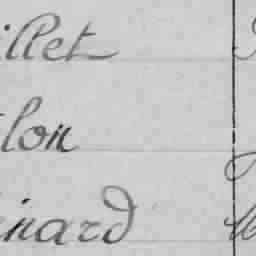 illet
lon
nard